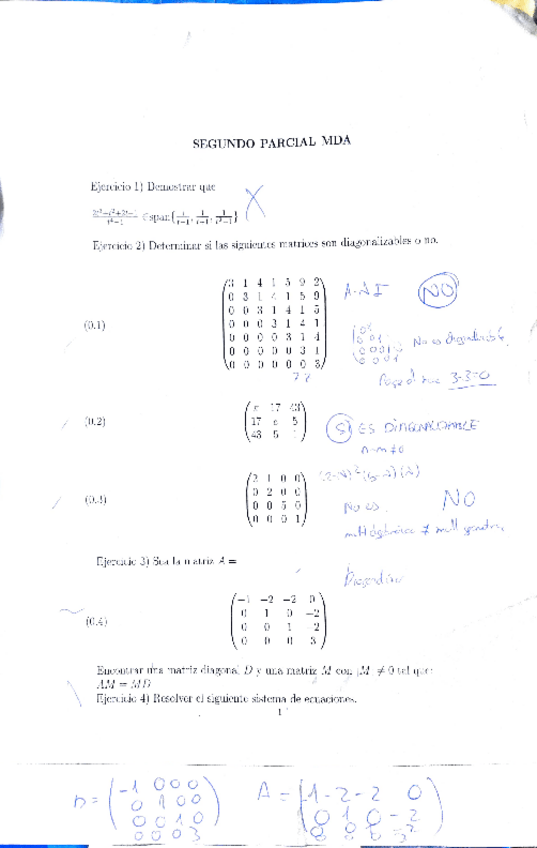 SEGUNDO PARCIAL MDA
Ejercicio 1) Demostrar que
∈ span{
Ejercicio 2) Determinar si las siguientes matrices son diagonalizables o no.
(0.1)
3 1 4 1 5 9 2
0 3 1 4 1 5 9
0 0 3 1 4 1 5
0 0 0 3 1 4 1
0 0 0 0 3 1 4
0 0 0 0 0 3 1
0 0 0 0 0 0 3
A-λI
NO
No es diagonalizable
3-3=0
(0.2)
π 17 43
17 e 5
43 5
SI ES DIAGONALIZABLE
(0.3)
2 1 0 0
0 2 0 0
0 0 5 0
0 0 0 1
No es
NO
mult algebraica ≠ mult geometrica
Ejercicio 3) Sea la matriz A =
(0.4)
-1 -2 -2 0
0 1 0 -2
0 0 1 -2
0 0 0 3
Encontrar una matriz diagonal D y una matriz M con |M| ≠ 0 tal que
AM = MD
Ejercicio 4) Resolver el siguiente sistema de ecuaciones.
1
D =
-1 0 0 0
0 1 0 0
0 0 1 0
0 0 0 3
A =
-1 -2 -2 0
0 1 0 -2